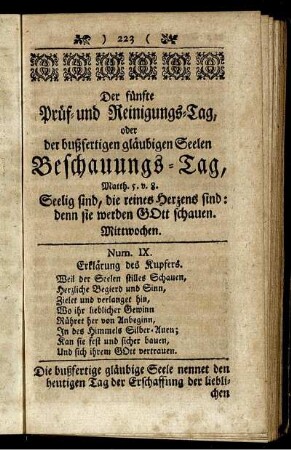 ) 223 (
Der fünfte
Prüf-und Reinigungs-Tag,
oder
der bußfertigen gläubigen Seelen
Beschauungs-Tag,
Matth. 5. v. 8.
Seelig sind, die reines Herzens sind:
denn sie werden GOtt schauen.
Mittwochen.
Num. IX.
Erklärung des Kupfers.
Weil der Seelen stilles Schauen,
Herzliche Begierd und Sinn,
Zielet und verlanget hin,
Wo ihr lieblicher Gewinn
Rühret her von Anbeginn,
In des Himmels Silber-Auen;
Kan sie fest und sicher bauen,
Und sich ihrem GOtt vertrauen.
Die bußfertige gläubige Seele nennet den
heutigen Tag der Erschaffung der liebli-
chen